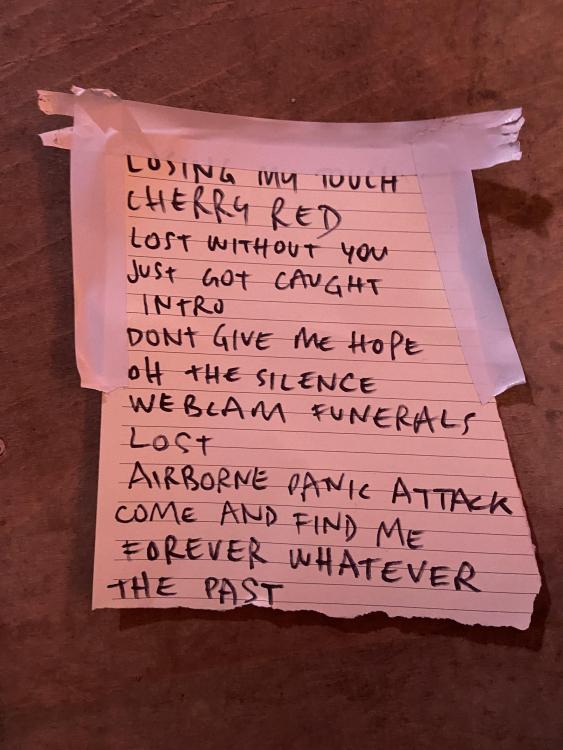 LOSING MY TOUCH
CHERRY RED
LOST WITHOUT YOU
JUST GOT CAUGHT
INTRO
DONT GIVE ME HOPE
OH THE SILENCE
WEBCAM FUNERALS
LOST
AIRBORNE PANIC ATTACK
COME AND FIND ME
FOREVER WHATEVER
THE PAST